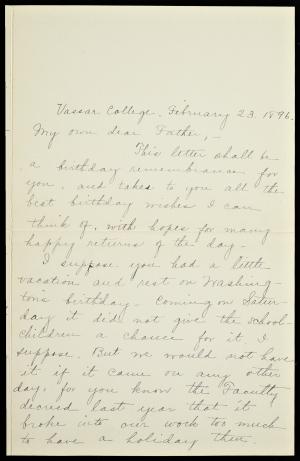 Vassar College. February 23. 1896.
My own dear Father,-
This letter shall be
a birthday remembrance for
you, and takes to you all the
best birthday wishes I can
think of, with hopes for many
happy returns of the day-
I suppose you had a little
vacation and rest on Washing-
ton's birthday- coming on Satur-
day it did not give the school-
children a chance for it, I
suppose. But we would not have
it if it came on any other
day, for you know the Faculty
decreed last year that it
broke into our work too much
to have a holiday then.